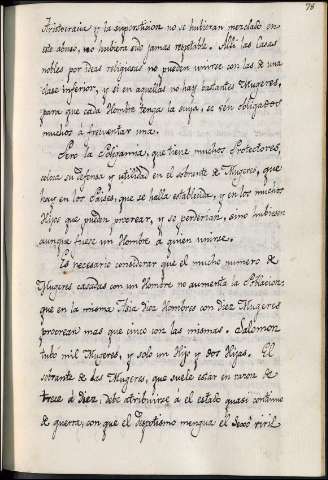 78
Aristocracia y la supersticion no se hubieran mezclado en
este abuso, no hubiera sido jamas respetable. Alli las Casas
nobles por ideas religiosas no pueden unirse con las de una
clase inferior, y si en aquellas no hay bastantes Mugeres,
para que cada Hombre tenga la suya, se ven obligados
muchos á freqüentar una.
Pero la Poligamia, que tiene muchos Protectores,
coloca su defensa y utilidad en el sobrante de Mugeres, que
hay en los Paises, que se halla establecida, y en los muchos
Hijos que pueden procrear, y se perderian, sino hubiesen
aunque fuese un Hombre á quien unirse.
Es necesario considerar que el mucho numero de
Mugeres casadas con un Hombre no aumenta la Poblacion:
que en la misma Asia diez Hombres con diez Mugeres
procrean mas que cinco con las mismas. Salomon
tubo mil Mugeres, y solo un Hijo y dos Hijas. El
sobrante de las Mugeres, que suele estar en razon de
trece á diez, debe atribuirse á el estado quasi continuo
de guerra, con que el Despotismo mengua el Sexô viril